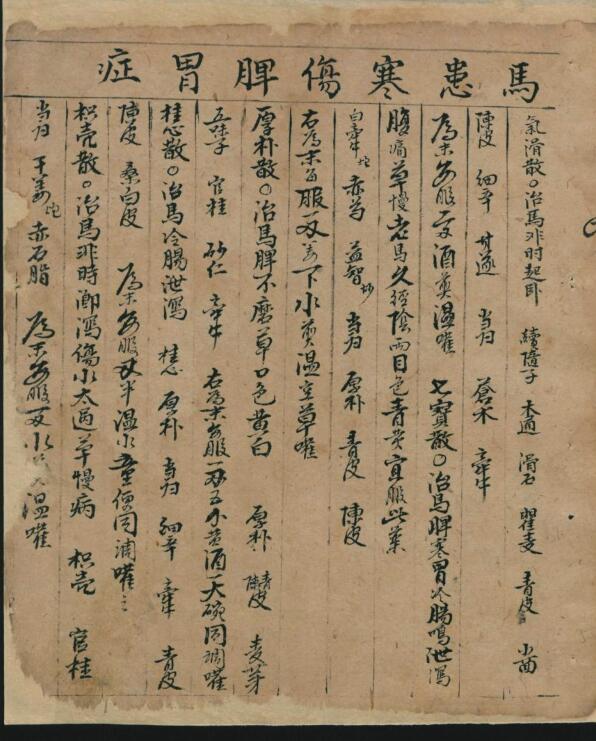 馬患寒傷脾胃症
氣滑散○治馬非时起卧　續隨子　木通　滑石　瞿麦　青皮　小茴
陳皮　細辛　甘遂　当归　蒼术　牽牛
為末每服　酒煎温嚾　七寳散○治馬脾寒胃冷腸鳴泄瀉
腹痛草慢老馬久經陰雨目色青黄宜服此藥
白牽牛　赤芍　益智　当归　厚朴　青皮　陳皮
右為末每服一両　下水煎温空草嚾
厚朴散○治馬脾不磨草口色黄白　厚朴　青皮　陳皮　麦芽
五味子　官桂　砂仁　牽牛　右為末每服一両　酒一大碗同調嚾
桂心散○治馬冷腸泄瀉　桂心　厚朴　当归　細辛　牽牛　青皮
陳皮　桑白皮　為末每服両半温水童便同調嚾之
枳壳散○治馬非時　瀉傷水太過草慢病　枳壳　官桂
当归　干姜　赤石脂　為末每服一両水　温嚾